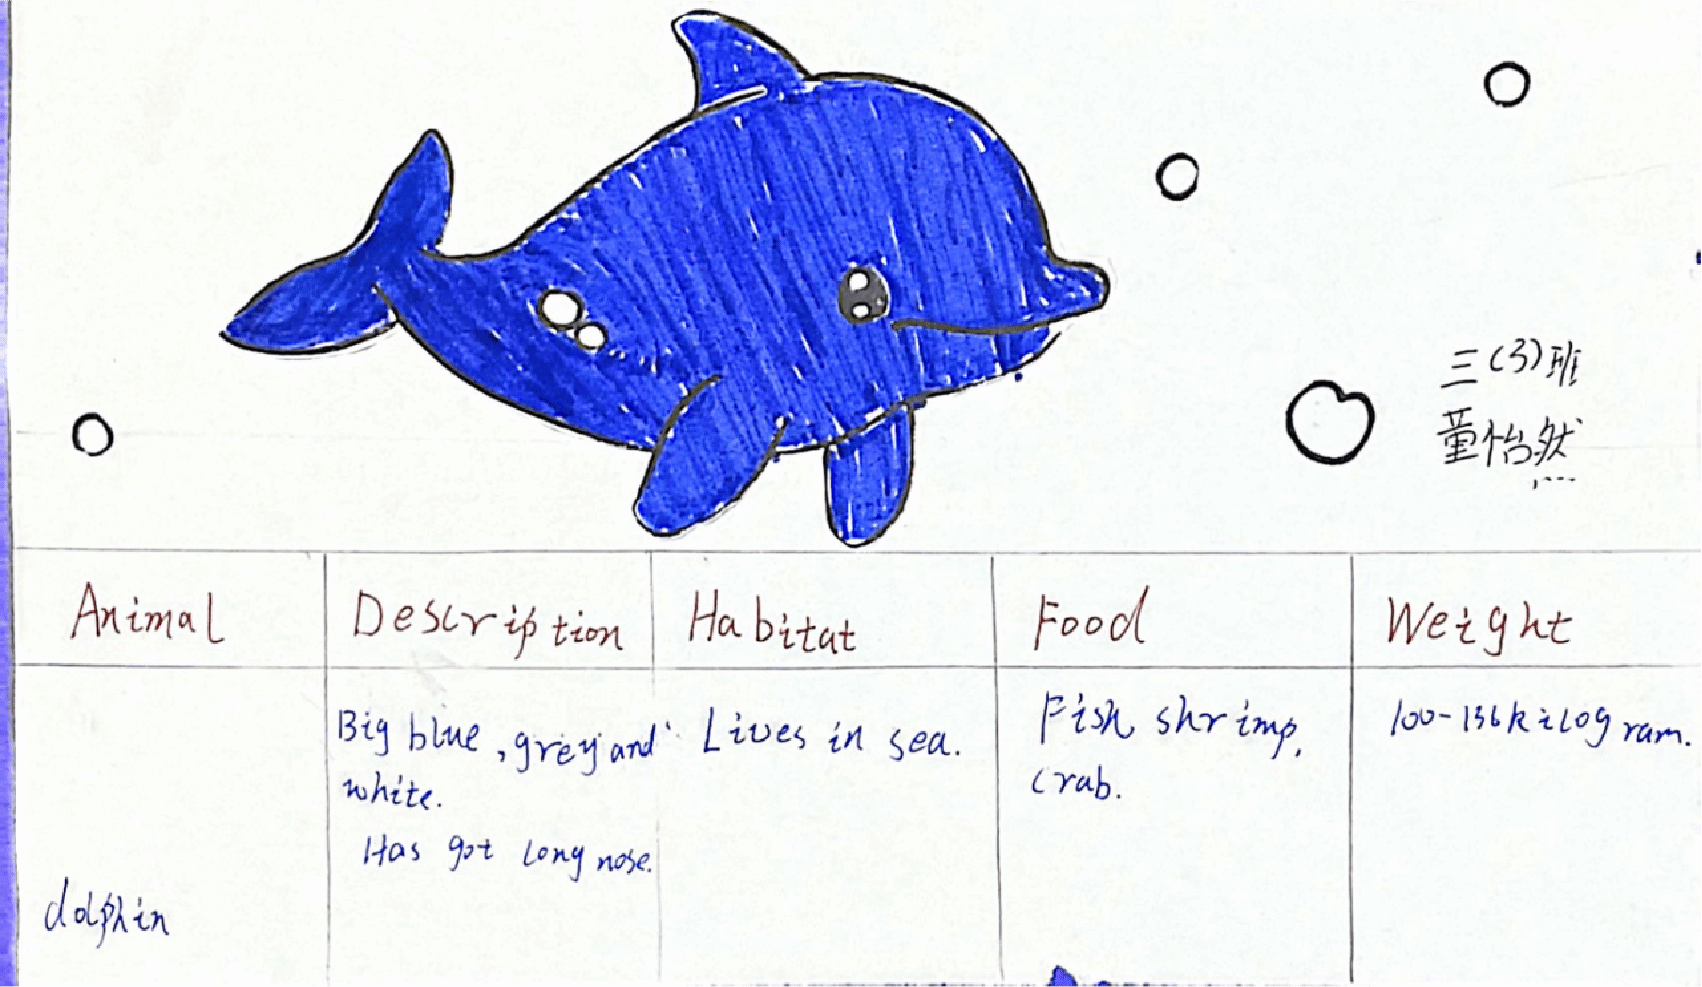 三(3)班
童怡然
Animal Description Habitat Food Weight
Big blue, grey and
white.
Has got long nose.
Lives in sea.
Fish, shrimp,
crab.
100-136kilogram.
dolphin